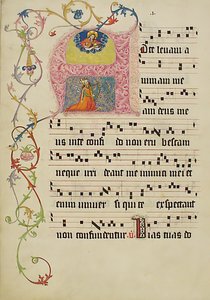 AD te leuaui a
nimam me
am deus me
us in te confi do non eru bescam
neque irri deant me inimici mei et
enim uniuer si qui te expectant
non confundentur Uias tuas do